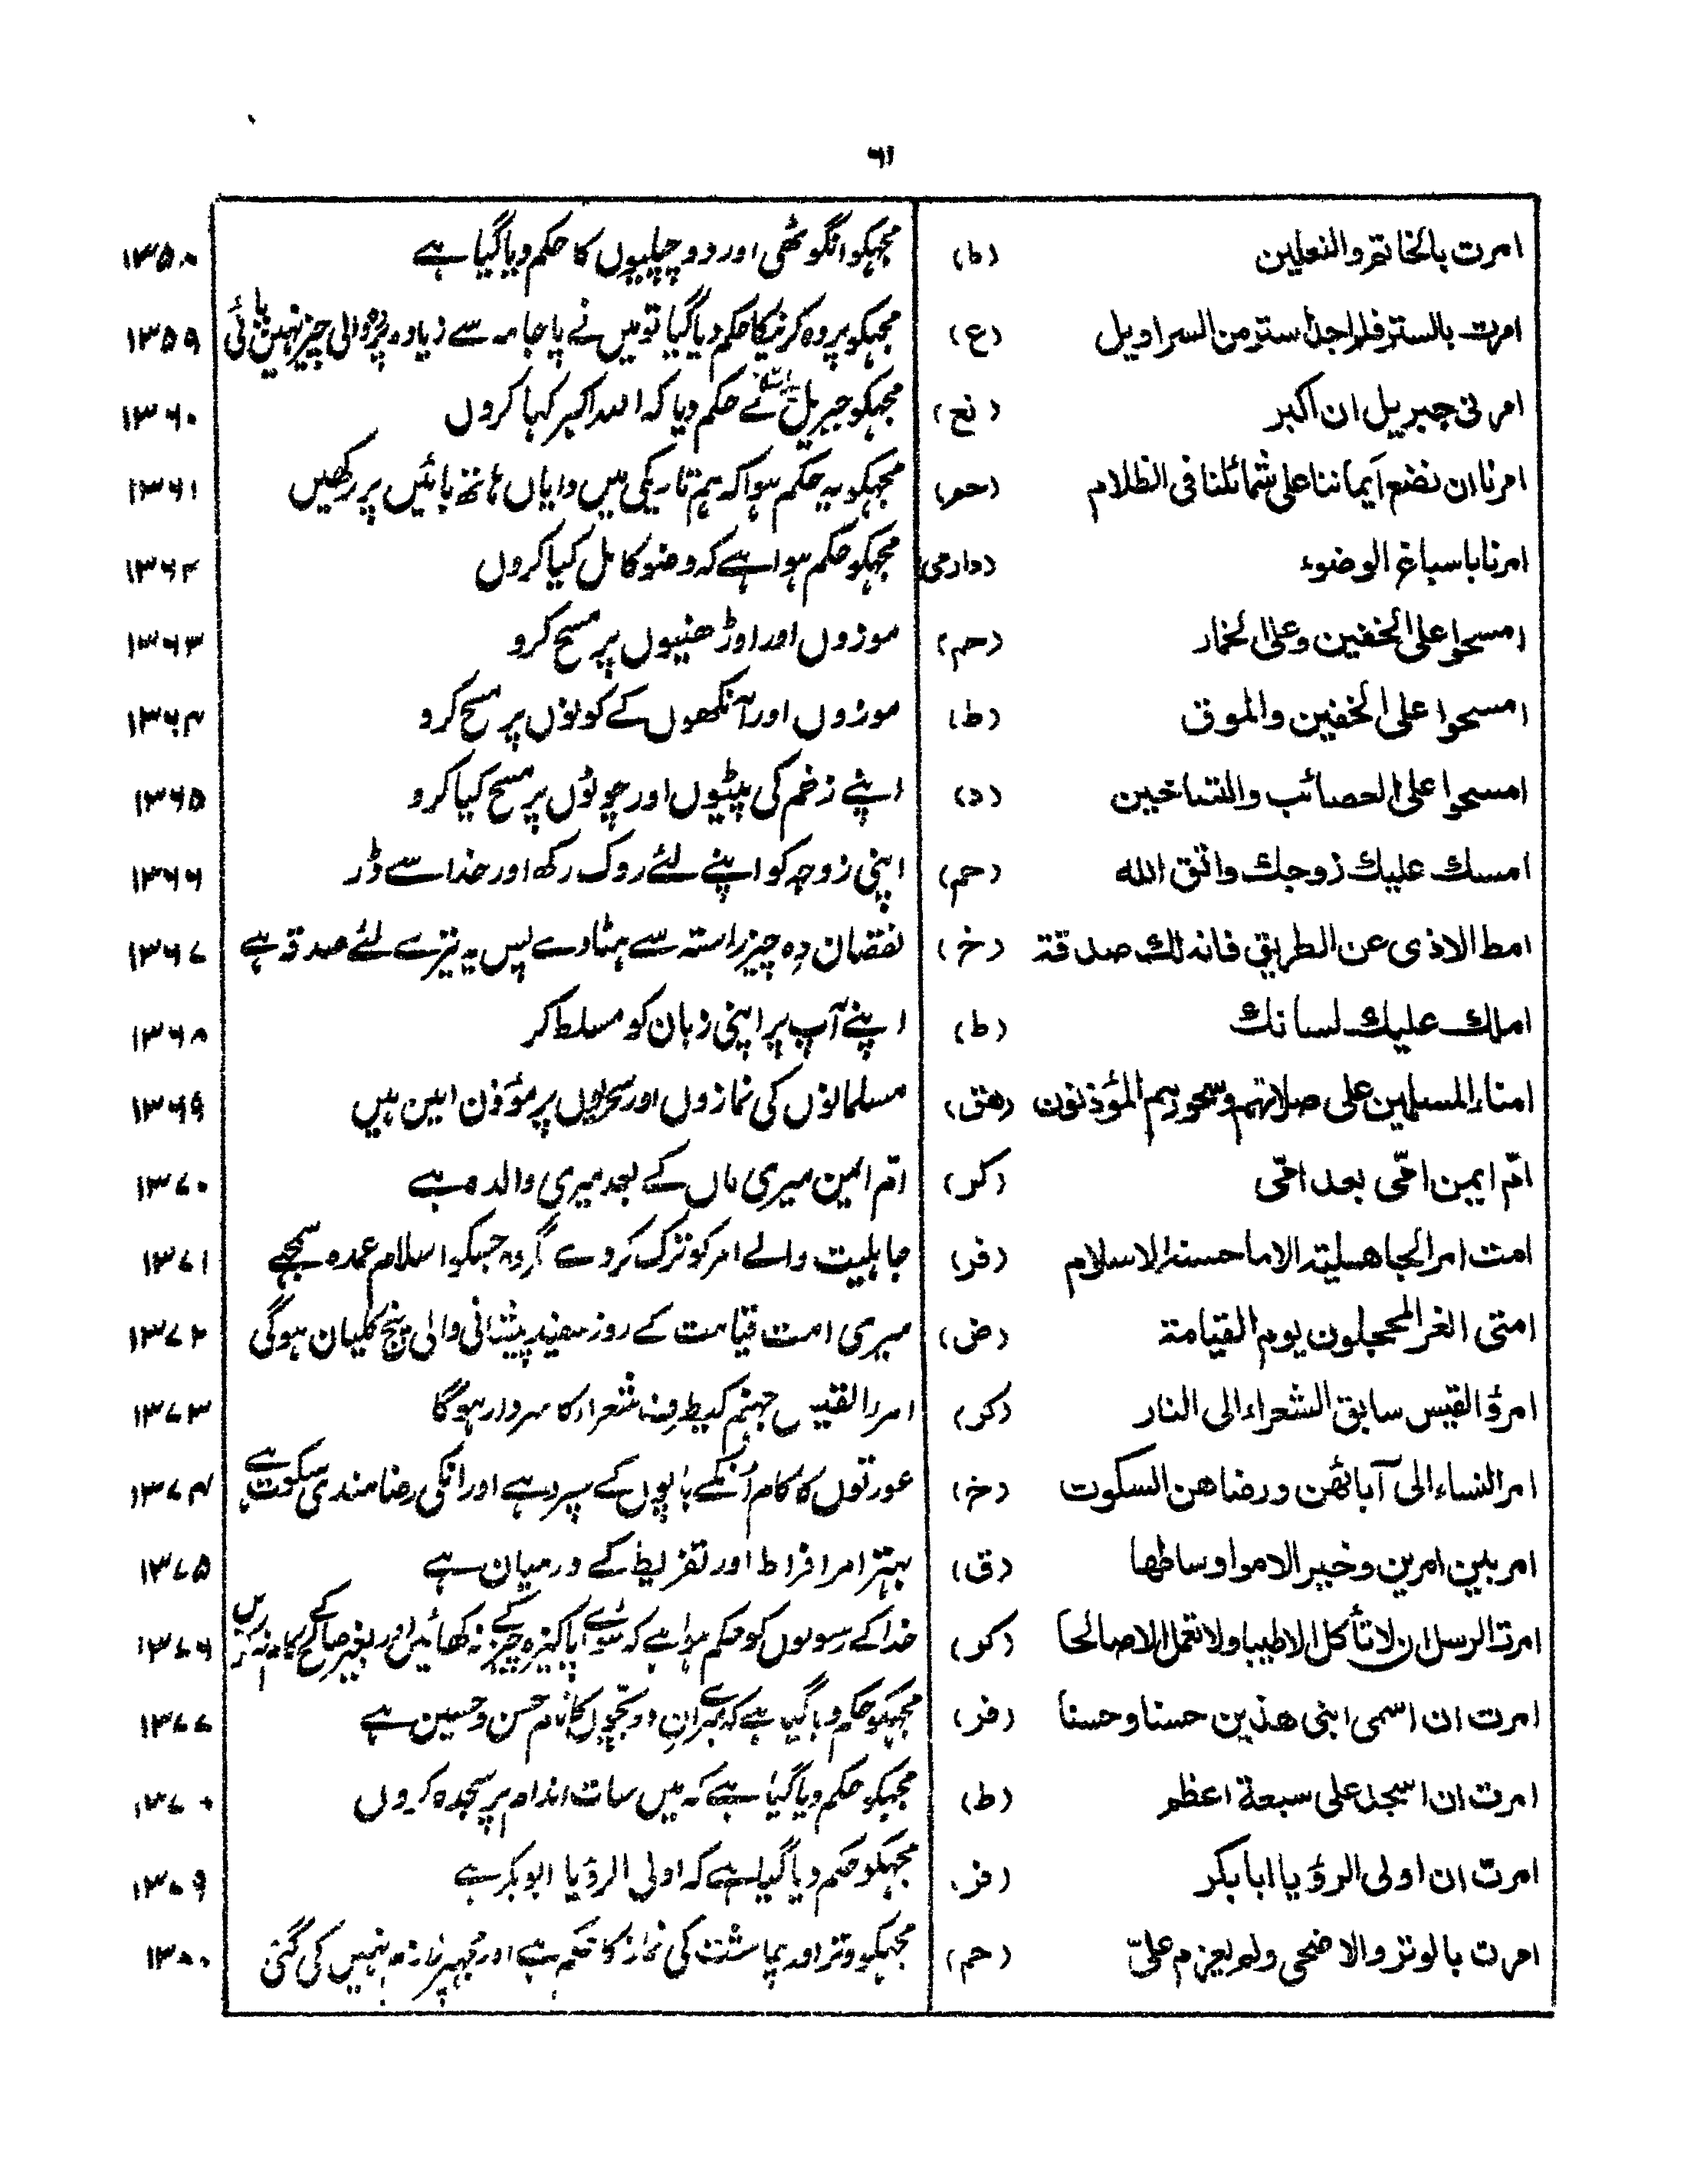 ٦١
امرت بالخاتم والنعلين (ط) مجہکو انگوٹھی اور دو چپلیوں کا حکم دیا گیا ہے ١٣٥٨
امرت بالستر فلم اجد استر من السراويل (ع) مجہکو پردہ کرنیکا حکم دیا گیا تو میں نے پاجامہ سے زیادہ پردہ والی چیز نہیں پائی ١٣٥٩
امرنی جبریل ان اکبر (نع) مجہکو جبریل نے حکم دیا کہ اللہ اکبر کہا کروں ١٣٦٠
امرنا ان نضع أيماننا على شمائلنا فی الظلام (حم) مجہکو یہ حکم ہوا کہ ہم تاریکی میں دایاں ہاتھ بائیں پر رکھیں ١٣٦١
امرنا باسباغ الوضوء (دارمی) مجہکو حکم ہوا ہے کہ وضو کامل کیا کروں ١٣٦٢
امسحوا علی الخفین وعلی الخمار (حم) موزوں اور اوڑھنیوں پر مسح کرو ١٣٦٣
امسحوا علی الخفین والموق (ط) موزوں اور آنکھوں کے کونوں پر مسح کرو ١٣٦٤
امسحوا علی العصائب والتساخين (د) اپنے زخم کی پٹیوں اور چوٹوں پر مسح کیا کرو ١٣٦٥
امسك عليك زوجك واتق الله (حم) اپنی زوجہ کو اپنے لئے روک رکھ اور خدا سے ڈر ١٣٦٦
امط الاذی عن الطریق فانہ لك صدقة (خ) نقصان دہ چیز راستہ سے ہٹا دے پس یہ تیرے لئے صدقہ ہے ١٣٦٧
املك عليك لسانك (ط) اپنے آپ پر اپنی زبان کو مسلط کر ١٣٦٨
امناء المسلمین علی صلاتهم وسحورهم المؤذنون (هق) مسلمانوں کی نمازوں اور سحریوں پر مؤذن امین ہیں ١٣٦٩
امّ ایمن امّی بعد امّی (کر) امّ ایمن میری ماں کے بعد میری والدہ ہے ١٣٧٠
امت امر الجاهلية الا ما حسنه الاسلام (فر) جاہلیت والے امر کو ترک کر دے گر وہ جسکو اسلام عمدہ سمجھے ١٣٧١
امتی الغر المحجلون یوم القیامة (ض) میری امت قیامت کے روز سفید پیشانی والی پنج کلیان ہوگی ١٣٧٢
امرؤ القیس سابق الشعراء الی النار (کر) امرؤ القیس جہنم کیطرف شعراء کا سردار ہوگا ١٣٧٣
امر النساء الی آبائهن ورضاهن السکوت (خ) عورتوں کا کام اُنکے باپوں کے سپرد ہے اور انکی رضا مندی سکوت ہے ١٣٧٤
امر بین امرین وخیر الامور اوساطها (ق) بہتر امر افراط اور تفریط کے درمیان ہے ١٣٧٥
امرت الرسل ان لا تأکل الا طیبا ولا تعمل الا صالحا (کر) خدا کے رسولوں کو حکم ہوا ہے کہ سوائے پاکیزہ چیز کے نہ کھائیں اور بغیر صالح کے کام نہ کریں ١٣٧٦
امرت ان اسمی ابنی هذین حسنا وحسنا (فر) مجہکو حکم دیا گیا ہے کہ میرے ان دو بچّوں کا نام حسن وحسین ہے ١٣٧٧
امرت ان اسجد علی سبعة اعظم (ط) مجہکو حکم دیا گیا ہے کہ میں سات اندام پر سجدہ کروں ١٣٧٨
امرت ان اولی الرؤیا ابابکر (فر) مجہکو حکم دیا گیا ہے کہ اولی الرؤیا ابوبکر ہے ١٣٧٩
امرت بالوتر والاضحی ولم یعزم علیّ (حم) مجہکو وتر اور چاشت کی نماز کا حکم ہے اور مُجہپر لازم نہیں کی گئی ١٣٨٠